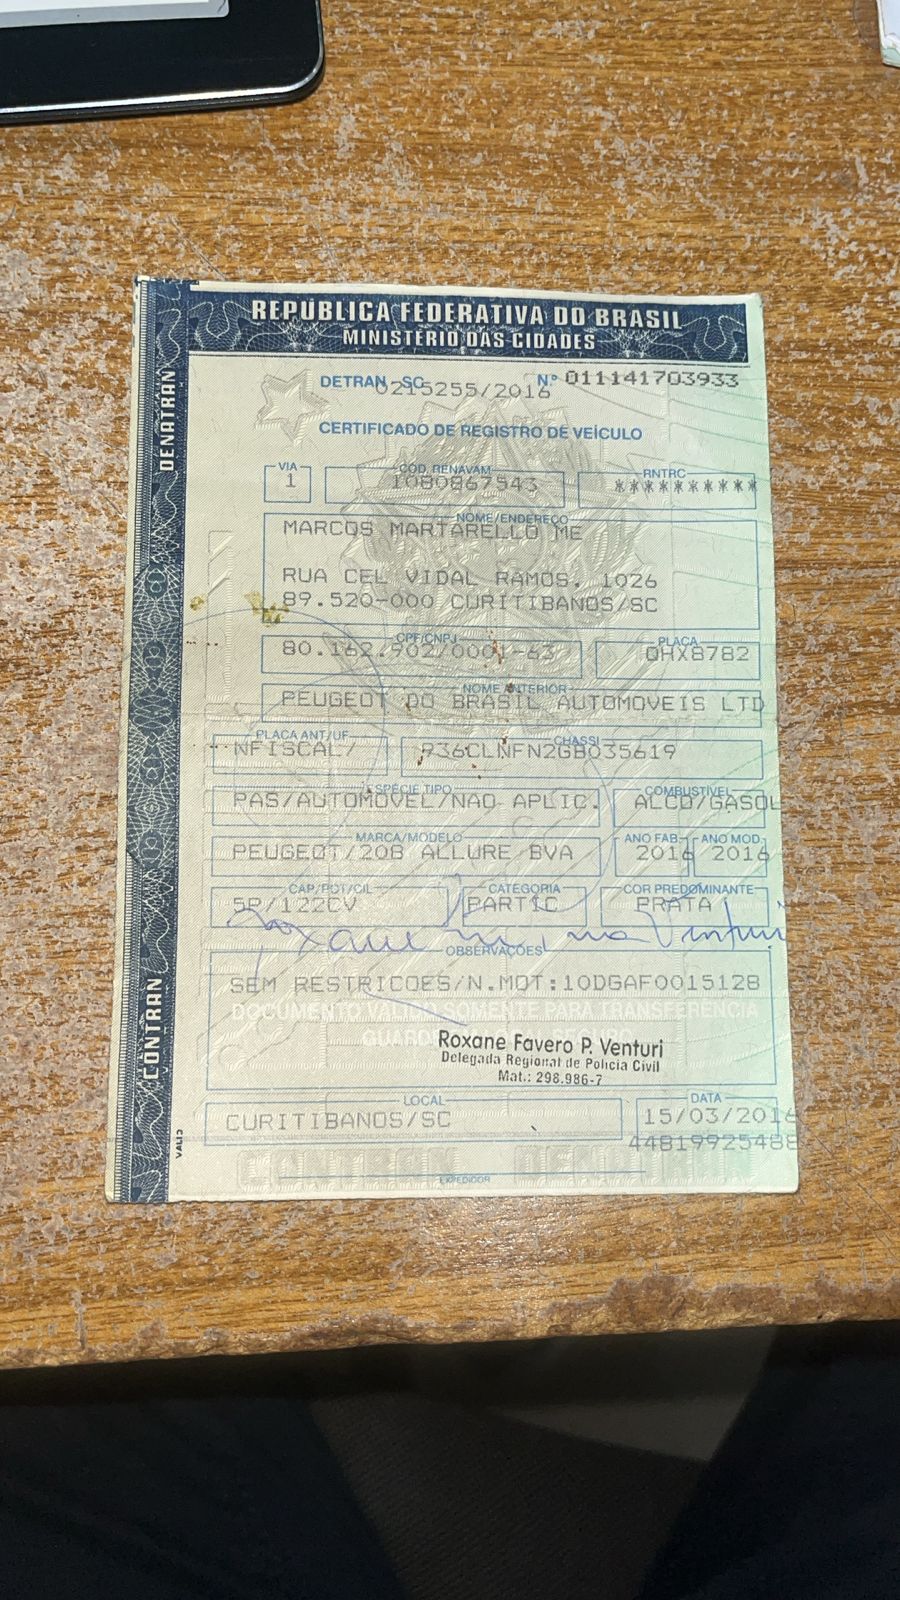 REPÚBLICA FEDERATIVA DO BRASIL
MINISTÉRIO DAS CIDADES
DENATRAN
DETRAN SC Nº 011141703933
0215255/2016
CERTIFICADO DE REGISTRO DE VEÍCULO
VIA CÓD. RENAVAM RNTRC
1 1080867543 *********
NOME/ENDEREÇO
MARCOS MARTARELLO ME
RUA CEL VIDAL RAMOS, 1026
89.520-000 CURITIBANOS/SC
CPF/CNPJ PLACA
80.162.902/0001-63 QHX8782
NOME ANTERIOR
PEUGEOT DO BRASIL AUTOMOVEIS LTD
PLACA ANT/UF CHASSI
NFISCAL/ 936CLNFN2GB035619
ESPÉCIE TIPO COMBUSTÍVEL
PAS/AUTOMOVEL/NAO APLIC. ALCO/GASOL
MARCA/MODELO ANO FAB. ANO MOD.
PEUGEOT/208 ALLURE BVA 2016 2016
CAP/POT/CIL CATEGORIA COR PREDOMINANTE
5P/122CV PARTIC PRATA
OBSERVAÇÕES
SEM RESTRICOES/N.MOT:10DGAF0015128
DOCUMENTO VÁLIDO SOMENTE PARA TRANSFERÊNCIA
Roxane Favero P. Venturi
Delegada Regional de Polícia Civil
Mat.: 298.986-7
CONTRAN
LOCAL DATA
CURITIBANOS/SC 15/03/2016
44819925488
EXPEDIDOR